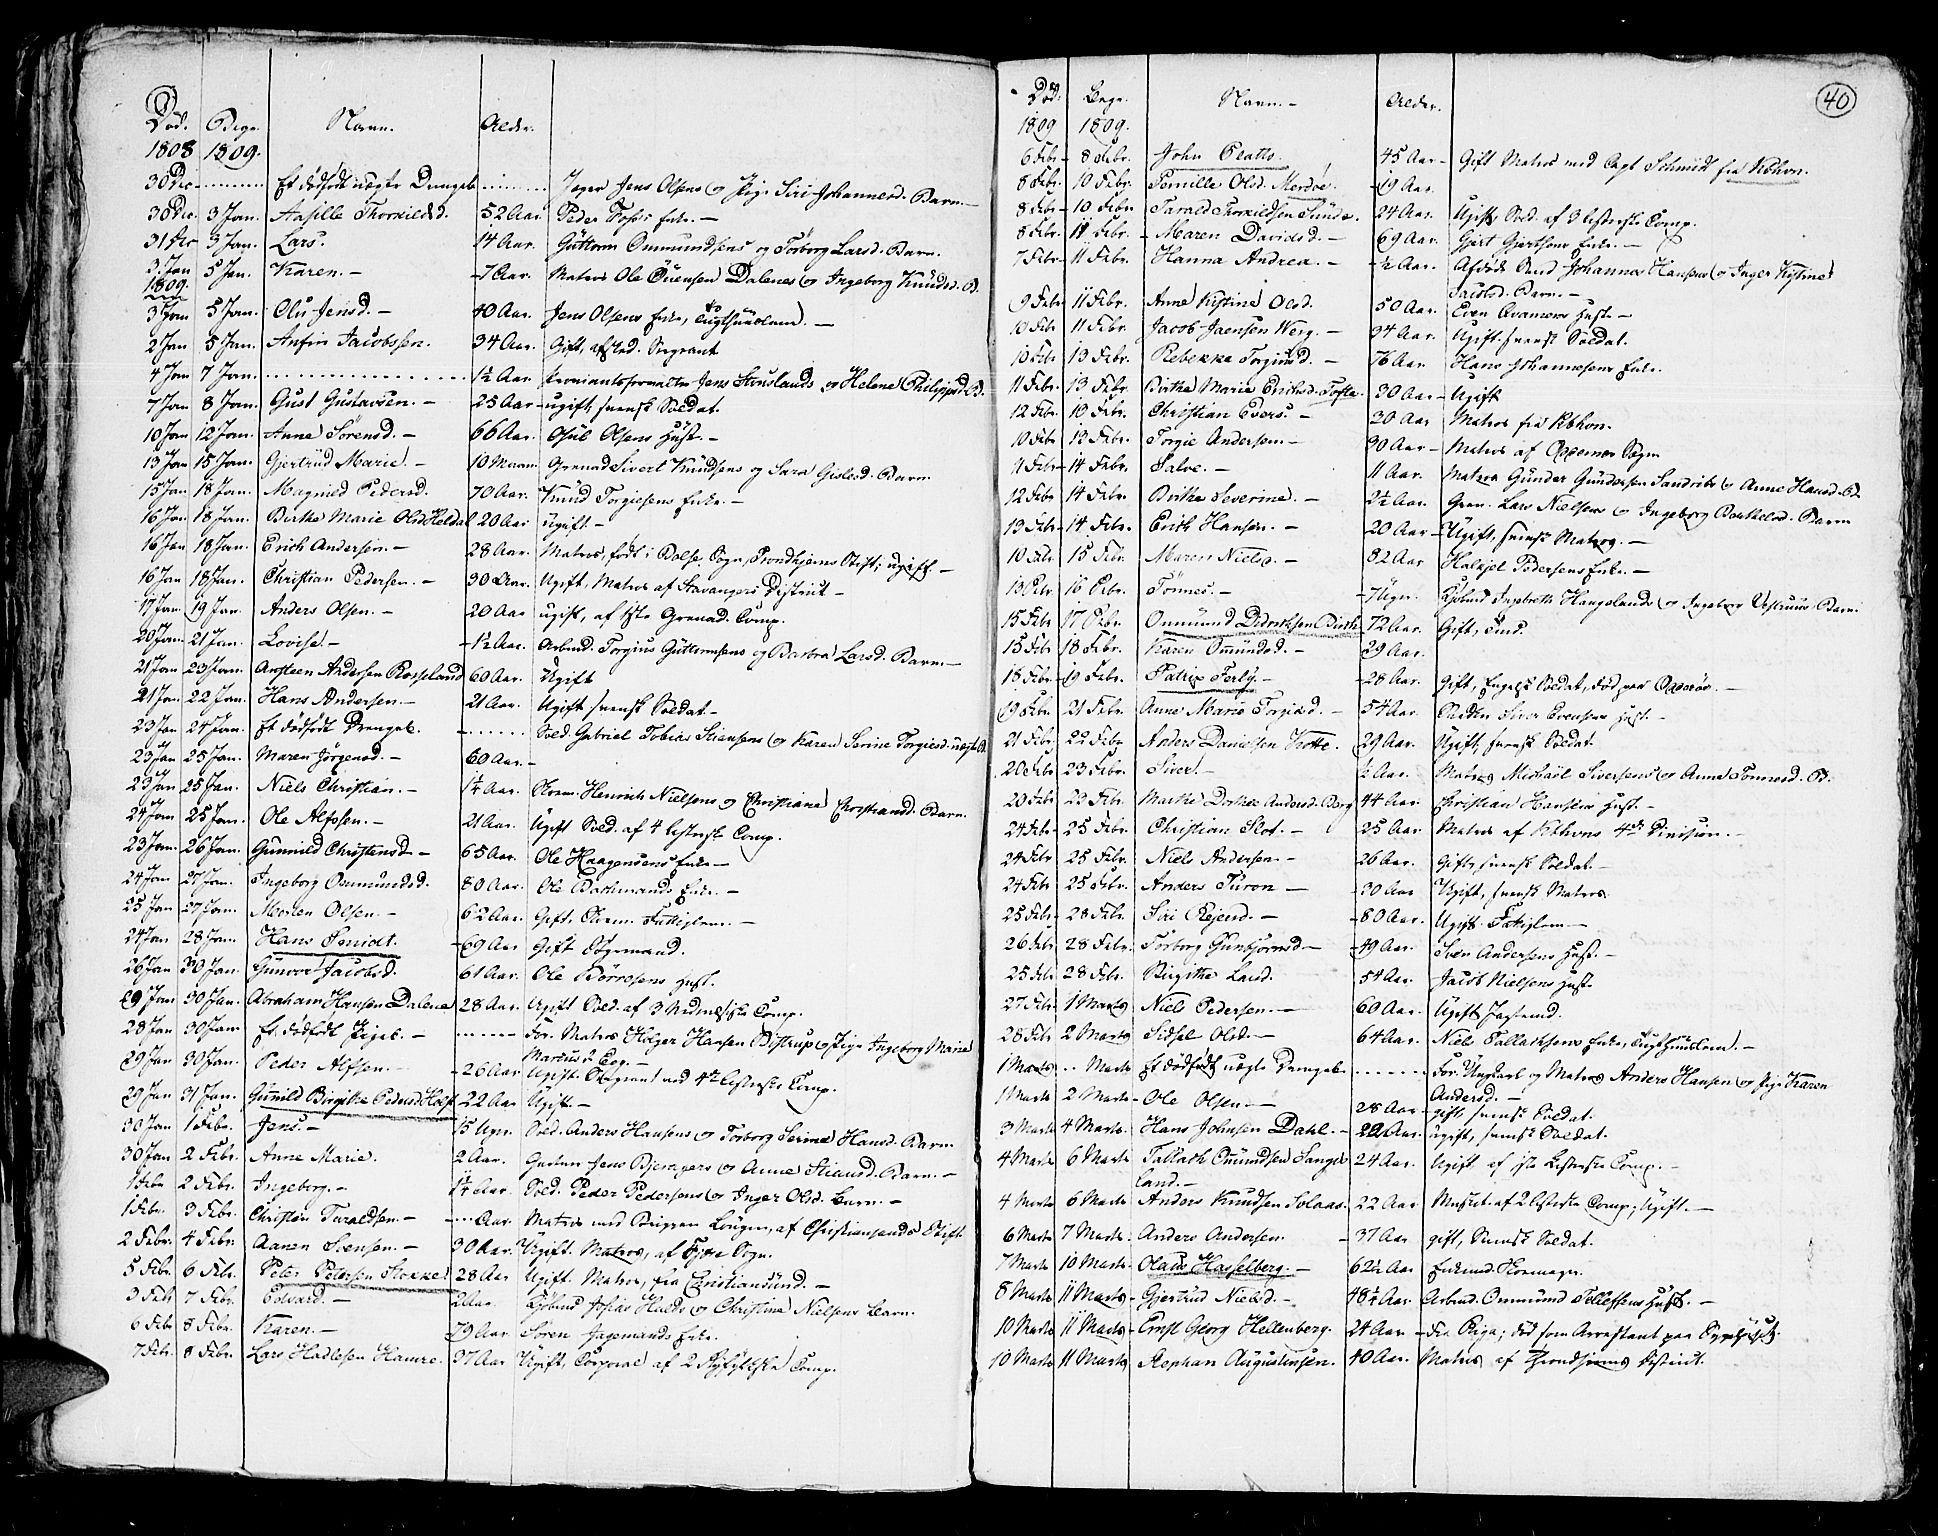 Død. Begr. Navn. Alder.
1808 1809.
30 Dec Et dødfødt uægte Drengeb. Jæger Jens Olsens og Pige Siri Johannesd. Barn
30 Dec. 3 Jan. Aasille Thorkildsd. 52 Aar Peder Foss's Enke. —
31 Dec 3 Jan. Lars. 14 Aar. Guttorm Ommundsens og Torborg Larsd. Barn.
3. Jan 5 Jan. Karen. — 7 Aar. Matros Ole Dalenes og Ingeborg Knudsd. B.
1809.
3 Jan 5 Jan. Olu Jensd. — 40 Aar. Jens Olsens Enke, Tugthuuslem. —
2 Jan 5 Jan. Anfin Jacobssen. 34 Aar. Gift, afsked. Sergeant
4 Jan 7 Jan. 1½ Aar. Proviantsforvalter Jens og Helene Philippsd. B.
7 Jan 8 Jan. Gust Gustavsen. — 25 Aar — ugift, svensk Soldat.
10 Jan 12 Jan. Anne Sørensd. — 66 Aar. Osul Olsens Hust. —
13 Jan 15 Jan. Gjertrud Marie. — 10 Maan. Grenad. Sivert Knudsens og Sara Gislesd. Barn.
15 Jan 18 Jan. Magnild Pedersd. 70 Aar. Knud Torgiesens Enke. —
16 Jan 18 Jan. Birthe Marie Olsd. Heldal 20 Aar ugift —
16 Jan 18 Jan. Erich Andersen. — 28 Aar. Matros, født i Bolsø Sogn, Trondhjems Stift; ugift. —
16 Jan 18 Jan. Christian Pedersen. — 30 Aar. Ugift, Matros af Stavangers District —
17 Jan. 19 Jan. Anders Olsen. — 20 Aar ugift, af 1ste Grenad. Comp.
20 Jan. 21 Jan. Lovise. — 1½ Aar. Arbmd. Torgius Guttormsens og Barbra Larsd. Barn. —
21 Jan 23 Jan. Arnsteen Andersen Rosseland 60 Aar. Ugift
21 Jan 22 Jan. Hans Andersen. — 21 Aar. Ugift svensk Soldat —
23 Jan 24 Jan. Et dødfødt Drengeb. Sold. Gabriel Tobias Stiansens og Karen Serine Torgiesd. uægte B.
23 Jan 25 Jan. Maren Jørgensd. — 60 Aar. —
23 Jan 25 Jan. Niels Christian. — 1¼ Aar. Henrich Nielsens og Christiane Christiansd. Barn.
24 Jan 25 Jan. Ole Alfssen. — 21 Aar. Ugift Sold. af 4 Listerske Comp.
23 Jan. 26 Jan. Gunnild Christensd — 65 Aar. Ole Haagensens Enke —
24 Jan 27 Jan. Ingeborg Ommundsd. 80 Aar. Ole Bachmands Enke. —
25 Jan 27 Jan. Morten Olsen. — 62 Aar. Gift. Fattiglem. —
24 Jan 28 Jan. Hans Smidt. 69 Aar Gift Bøgemand.
26 Jan 30 Jan. Gunvor Jacobsd. 61 Aar. Ole Børresens Hust.
29 Jan 30 Jan. Abraham Hansen Dalene 28 Aar. Ugift Sold. af 3 Nednæsiske Comp.
28 Jan 30 Jan Et dødfødt Pigeb. For. Matros Holger Hansen Bistrup og Pige Ingeborg Marie
29 Jan 30 Jan. Peder Alfsen. 26 Aar Ugift. ved 4de Listerske Comp.
29 Jan 31 Jan. Gunild Birgitte Pedersd. Holst 22 Aar Ugift. —
30 Jan 1 Febr. Jens. — 15 Uger. Sold. Anders Hansens og Torborg Serine Hansd. Barn.
30 Jan 2 Febr. Anne Marie. 2 Aar. Jens Bjerregers og Anne Stiansd. Barn. —
1 Febr 2 Febr. Ingeborg. — 1¼ Aar. Sold. Peder Pedersens og Inger Olsd. Barn. —
1 Febr. 3 Febr. Christen Taraldsen. — Aar. Matros med Briggen Lougen, af Christiansands Stift
2 Febr. 4 Febr. Aanen Svensen. — 30 Aar. Ugift. Matros, af Sogn.
5 Febr. 6 Febr. Peter Petersen Stokke 28 Aar Ugift Matros, fra Christiansund. —
3 Febr 7 Febr. Edvard. — 2 Aar. Kjøbmd Josias Halds og Christine Nielsens Barn.
6 Febr 8 Febr. Karen. — 79 Aar. Søren Jagemands Enke.
7 Febr. 8 Febr. Lars Hadlesen Hamre. 37 Aar Ugift, Corporal af 2 Ryfylkske Comp.
40
Død. Begr. Navn. — Alder.
1809 1809.
6 Febr — 8 Febr. John Peatto. 45 Aar — Gift Matros med Capt Schmidt fra Kbhvn.
8 Febr. 10 Febr. Pernille Olsd. Merdøe. 19 Aar.
8 Febr — 10 Febr. Tarald Thorkildsen Sunde. 24 Aar. Ugift Sold. af 3 Listerske Comp.
8 Febr. 11 Febr. Maren Davidsd. — 69 Aar. Giert Giertsens Enke. —
7 Febr — 11 Febr. Hanna Andrea. — ½ Aar. Afdøde Johannes Hansens og Inger Kistine
Jacobsd. Barn. —
9 Febr 11 Febr. Anne Kistine Olsd. 50 Aar. Even Aamons Hust. —
10 Febr 11 Febr. Jacob Jaensen Werg. — 34 Aar. Ugift. svensk Soldat.
10 Febr 13 Febr. Rebekka Torgiusd. — 76 Aar. Hans Johannesens Enke.
11 Febr. 13 Febr. Birthe Marie Erichsd. Tofte. 30 Aar — Ugift
12 Febr. 10 Febr. Christian Evers. — 30 Aar Matros fra Kbhvn.
10 Febr. 13 Febr. Torgie Andersen. — 30 Aar — Matros af Sogn
11 Febr — 14 Febr. Salve. — 11 Aar. Matros Gunder Gundersen Sandvigs og Anne Hansd. B.
12 Febr 14 Febr. Birthe Severine. — 2½ Aar. Gren. Lars Nielsens og Ingeborg Barthelsd. Barn
13 Febr — 14 Febr. Erich Hansen. — 20 Aar — Ugift, svensk Matros. —
10 Febr 15 Febr. Maren Nielsd. — 82 Aar. Pedersens Enke. —
13 Febr 16 Febr. Tønnes. — 7 Uger. Kjøbmd Ingebreth Haugelands og Ingeborg Barn.
15 Febr 17 Febr. Onmund Didriksen Birke 72 Aar. Gift,
15 Febr 18 Febr. Karen Ommundsd. — 29 Aar.
18 Febr. 19 Febr. Patric Ferly. — 28 Aar. Gift, Engelsk Soldat, død paa Odderøe. —
19 Febr. 21 Febr. Anne Marie Torgiesd. — 54 Aar. Siver Evensens Hust. —
21 Febr. 22 Febr. Anders Danielsen Krotte. 29 Aar. Ugift, svensk Soldat.
20 Febr 23 Febr. Siver. — ½ Aar. Matros Michael Siversens og Anna Tønnesd. B.
20 Febr 23 Febr. Marthe Dorthea Andersd. Borg 44 Aar. Christian Hansens Hust. —
24 Febr. 25 Febr. Christian Slot. — 25 Aar. Matros af Kbhvns 4de Division. —
24 Febr 25 Febr. Niels Andersen. — 26 Aar. Gift, svensk Soldat. —
24 Febr 25 Febr. Anders Turon — 30 Aar Ugift, svensk Matros.
25 Febr — 28 Febr. Siri Rejersd. — 80 Aar. Ugift Fattiglem —
26 Febr. 28 Febr. Torborg Gunbjørnsd — 49 Aar. Sven Andersens Hust. —
25 Febr 28 Febr. Birgitte Larsd. 54 Aar. Jacob Nielsens Hust.
27 Febr. 1 Marts Niels Pedersen. — 60 Aar. Ugift
28 Febr. 2 Marts Sidsel Olsd. — 64 Aar. Niels Tallaksens Enke, Tugthuuslem. —
1 Marts Marts Et dødfødt uægte Drengeb. For. Ungkarl og Matros Anders Hansen og Pige Karen
Andersd. —
1 Marts 2 Marts — Ole Olsen. — 28 Aar — gift, svensk Soldat.
3 Marts 4 Marts — Hans Johnsen Dahl. — 22 Aar. ugift, svensk Soldat.
4 Marts 6 Marts Tallach Omundsen Songe 24 Aar. Ugift af 1ste Listerske Comp. —
land. —
4 Marts 6 Marts Anders Knudsen Solaas. 22 Aar Musket. af 2 Listerske Comp; Ugift. —
6 Marts 7 Marts. Anders Andersen. 37 Aar gift, Svensk Soldat.
7 Marts 10 Marts. Olaus Hasselberg. — 62½ Aar
8 Marts 11 Marts. Gjertrud Nielsd. — 48½ Aar. Arbmd. Ommund Tellefsens Hust. —
10 Marts 11 Marts Ernst Georg Hellenberg. 24 Aar. — fra Riga; død som Arrestant paa
10 Marts 11 Marts Stephan Augustinsen. 40 Aar. Matros af Trondhjems District.